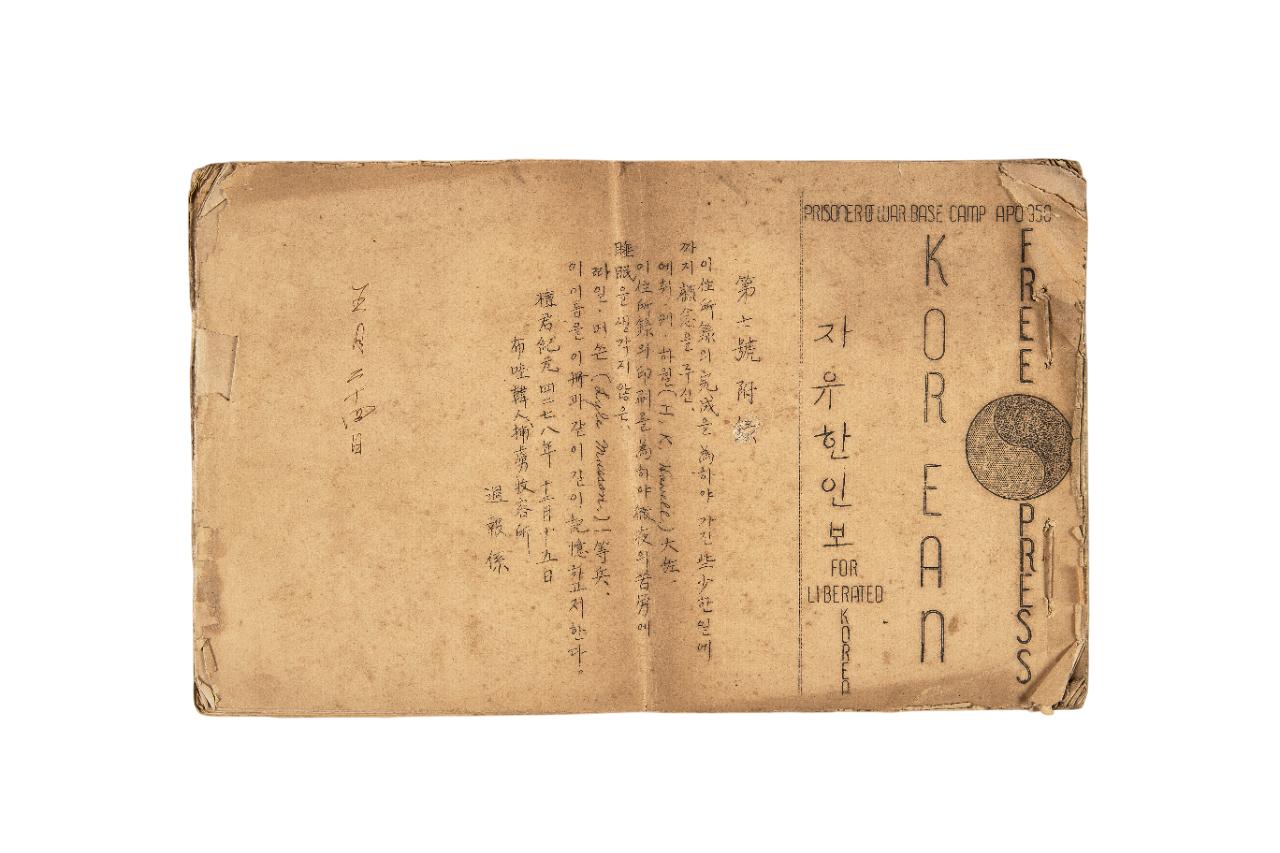 PRISONER OF WAR BASE CAMP APO 950
FREE PRESS
KOREAN
자유한인보
FOR
LIBERATED
KOREA
第七號 附錄
이住所錄의完成을 爲하야 가진 些少한일에
까지 顧念을 주신
에취·케·하웰 (H. K. Howell) 大佐.
이住所錄의印刷를 爲하야 徹夜의苦勞에
睡眠을 생각지 않은
라일·머쓴 (Lyle Musson.) 一等兵.
이이들을 이冊과같이 길이 記憶하고저한다。
檀君紀元四二七八年 十二月十五日
布哇韓人捕虜收容所
週報係
五月二十四日